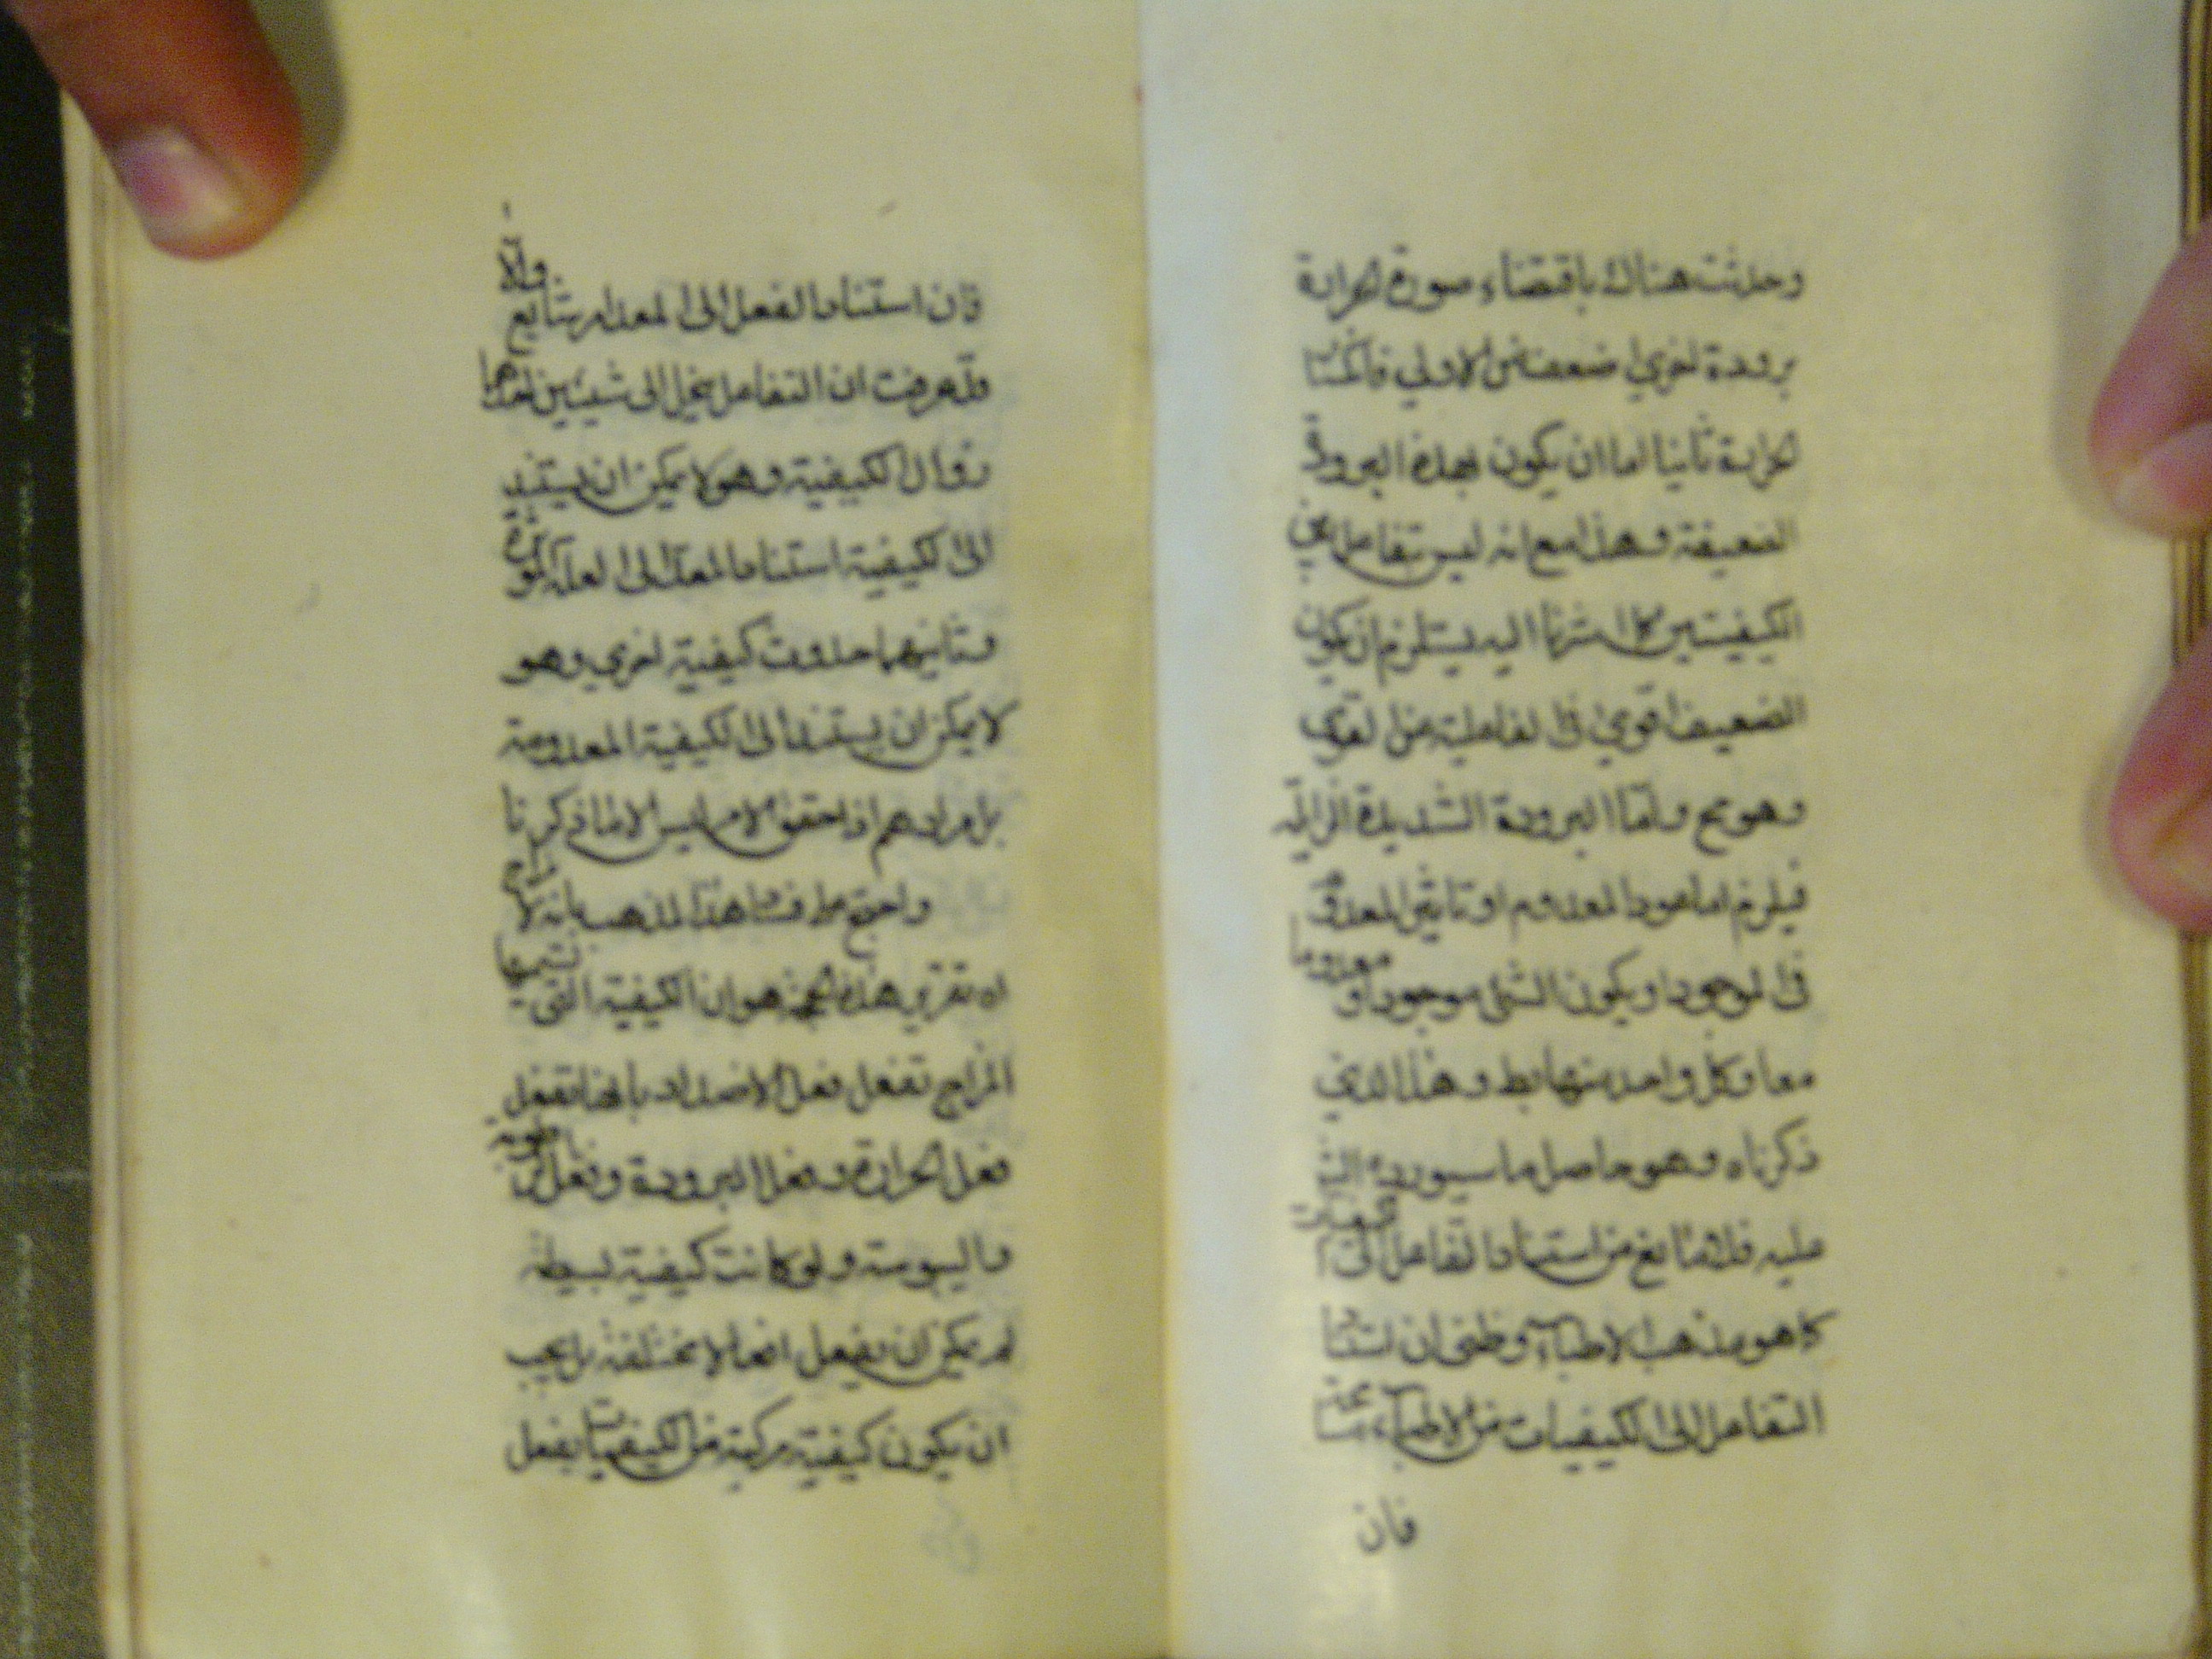 وحدثت هناك باقتضاء صورة الحرارة
برودة اخري اضعف من الاولي فانكسار
الحرارة ثانيا اما ان يكون بهذه البرودة
الضعيفة وهذا مع انه ليس تفاعلا بين
الكيفيتين كما اشرنا اليه يستلزم ان يكون
الضعيف اقوي في الفاعلية من القوي
وهو مح واما البرودة الشديدة الزايلة
فيلزم اما عود المعدوم او تاثير المعدوم
في الموجود او يكون الشئ موجودا ومعدوما
معا وكل واحد منها بط وهذا الذي
ذكرناه وهو حاصل ما سيورده
عليه فلا مانع من استناد التفاعل الى الكيفيات
كما هو مذهب الاطباء وظني ان استناد
التفاعل الى الكيفيات من الاطباء
فان
فان استناد الفعل الى المعد امر شايع والا
قد عرفت ان التفاعل ينحل الى شيئين احدهما
زوال الكيفية وهو لا يمكن ان يستند
الى الكيفية استناد المعد الى العلة المؤثرة
وثانيهما حدوث كيفية اخري وهو
لا يمكن ان يستند الى الكيفية المعدومة
بل مرادهم اذا حقق الامر ليس الا ما ذكرنا
واحتج على فساد هذا المذهب بانه
تقرير هذه الحجة هو ان الكيفية التي تسميها
المزاج تفعل فعل الاضداد بانها تفعل
فعل الحرارة وفعل البرودة وفعل الرطوبة
واليبوسة ولو كانت كيفية بسيطة
لم يمكن ان يفعل افعالا مختلفة بل يجب
ان يكون كيفية مركبة من الكيفيات يفعل